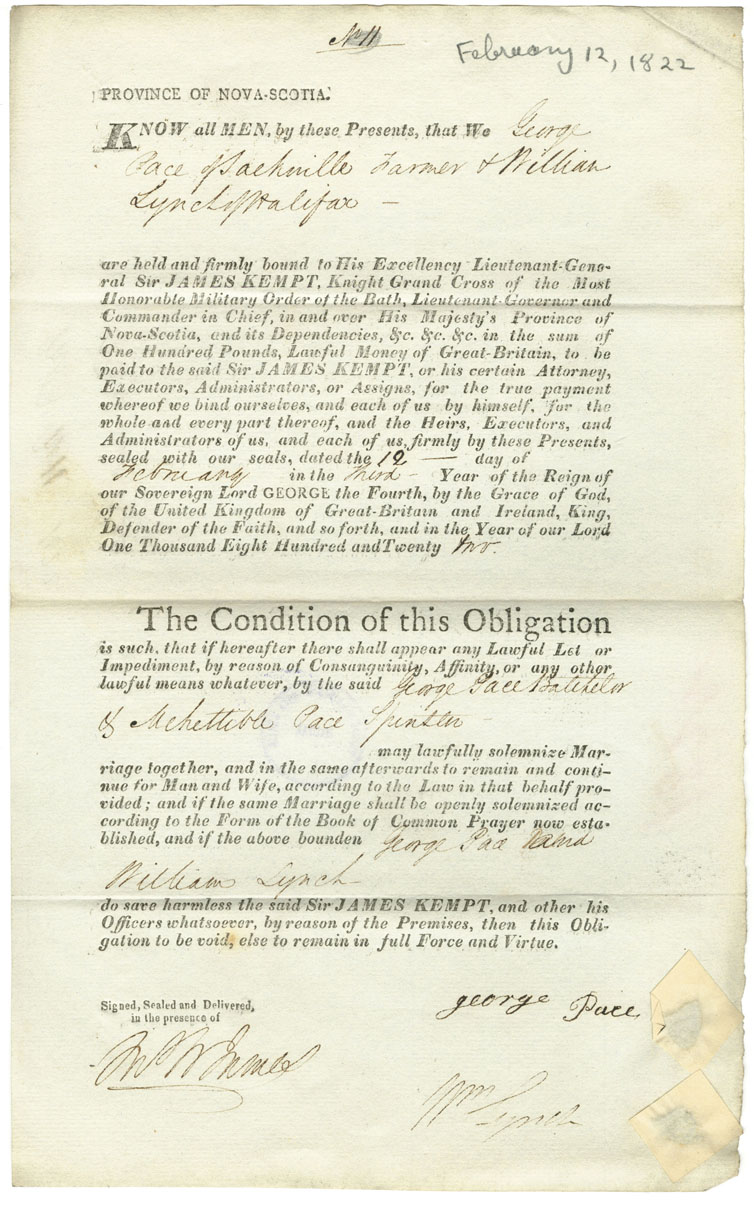 No 11
February 12, 1822
PROVINCE OF NOVA-SCOTIA.
KNOW all MEN, by these Presents, that We George
Pace of Sackville Farmer & William
Lynch of Halifax —
are held and firmly bound to His Excellency Lieutenant-Gene-
ral Sir JAMES KEMPT, Knight Grand Cross of the Most
Honorable Military Order of the Bath, Lieutenant-Governor and
Commander in Chief, in and over His Majesty's Province of
Nova-Scotia, and its Dependencies, &c. &c. &c. in the sum of
One Hundred Pounds, Lawful Money of Great-Britain, to be
paid to the said Sir JAMES KEMPT, or his certain Attorney,
Executors, Administrators, or Assigns, for the true payment
whereof we bind ourselves, and each of us by himself, for the
whole and every part thereof, and the Heirs, Executors, and
Administrators of us, and each of us, firmly by these Presents,
sealed with our seals, dated the 12 — day of
February in the Third — Year of the Reign of
our Sovereign Lord GEORGE the Fourth, by the Grace of God,
of the United Kingdom of Great-Britain and Ireland, King,
Defender of the Faith, and so forth, and in the Year of our Lord
One Thousand Eight Hundred and Twenty two.
The Condition of this Obligation
is such, that if hereafter there shall appear any Lawful Let or
Impediment, by reason of Consanguinity, Affinity, or any other
lawful means whatever, by the said George Pace Batchelor
& Mehettible Pace Spinster —
may lawfully solemnize Mar-
riage together, and in the same afterwards to remain and conti-
nue for Man and Wife, according to the Law in that behalf pro-
vided; and if the same Marriage shall be openly solemnized ac-
cording to the Form of the Book of Common Prayer now esta-
blished, and if the above bounden George Pace and
William Lynch
do save harmless the said Sir JAMES KEMPT, and other his
Officers whatsoever, by reason of the Premises, then this Obli-
gation to be void, else to remain in full Force and Virtue.
Signed, Sealed and Delivered,
in the presence of
george Pace
Wm Lynch